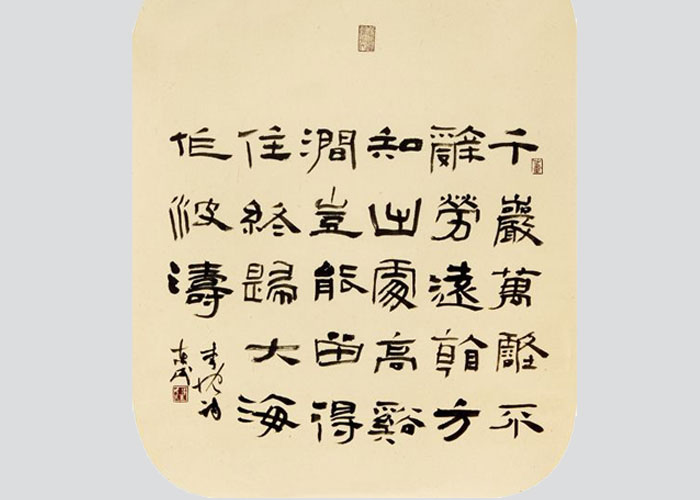 千巖萬壑不
辭勞遠看方
知出處高谿
澗豈能留得
住終歸大海
作波濤